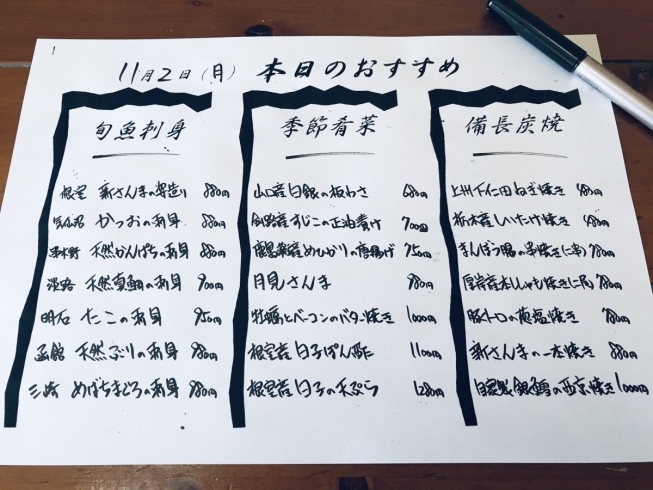 11月2日(月) 本日のおすすめ
旬魚刺身
根室 新さんまの姿造り 880円
気仙沼 かつおの刺身 880円
串木野 天然かんぱちの刺身 880円
淡路 天然真鯛の刺身 900円
明石 たこの刺身 950円
函館 天然ぶりの刺身 980円
三崎 めばちまぐろの刺身 980円
季節肴菜
山口産白銀の板わさ 680円
釧路産すじこの正油漬け 700円
鹿児島産めひかりの唐揚げ 750円
月見さんま 980円
牡蠣とベーコンのバター焼き 1000円
根室産 白子ぽん酢 1100円
根室産 白子の天ぷら 1280円
備長炭焼
上州下仁田ねぎ焼き 480円
栃木産しいたけ焼き 480円
きんぽう陽の串焼き(二串) 780円
厚岸産本ししゃも焼き(二尾) 780円
豚トロの葱塩焼き 780円
新さんまの一本焼き 880円
自家製銀鱈の西京焼き 1000円